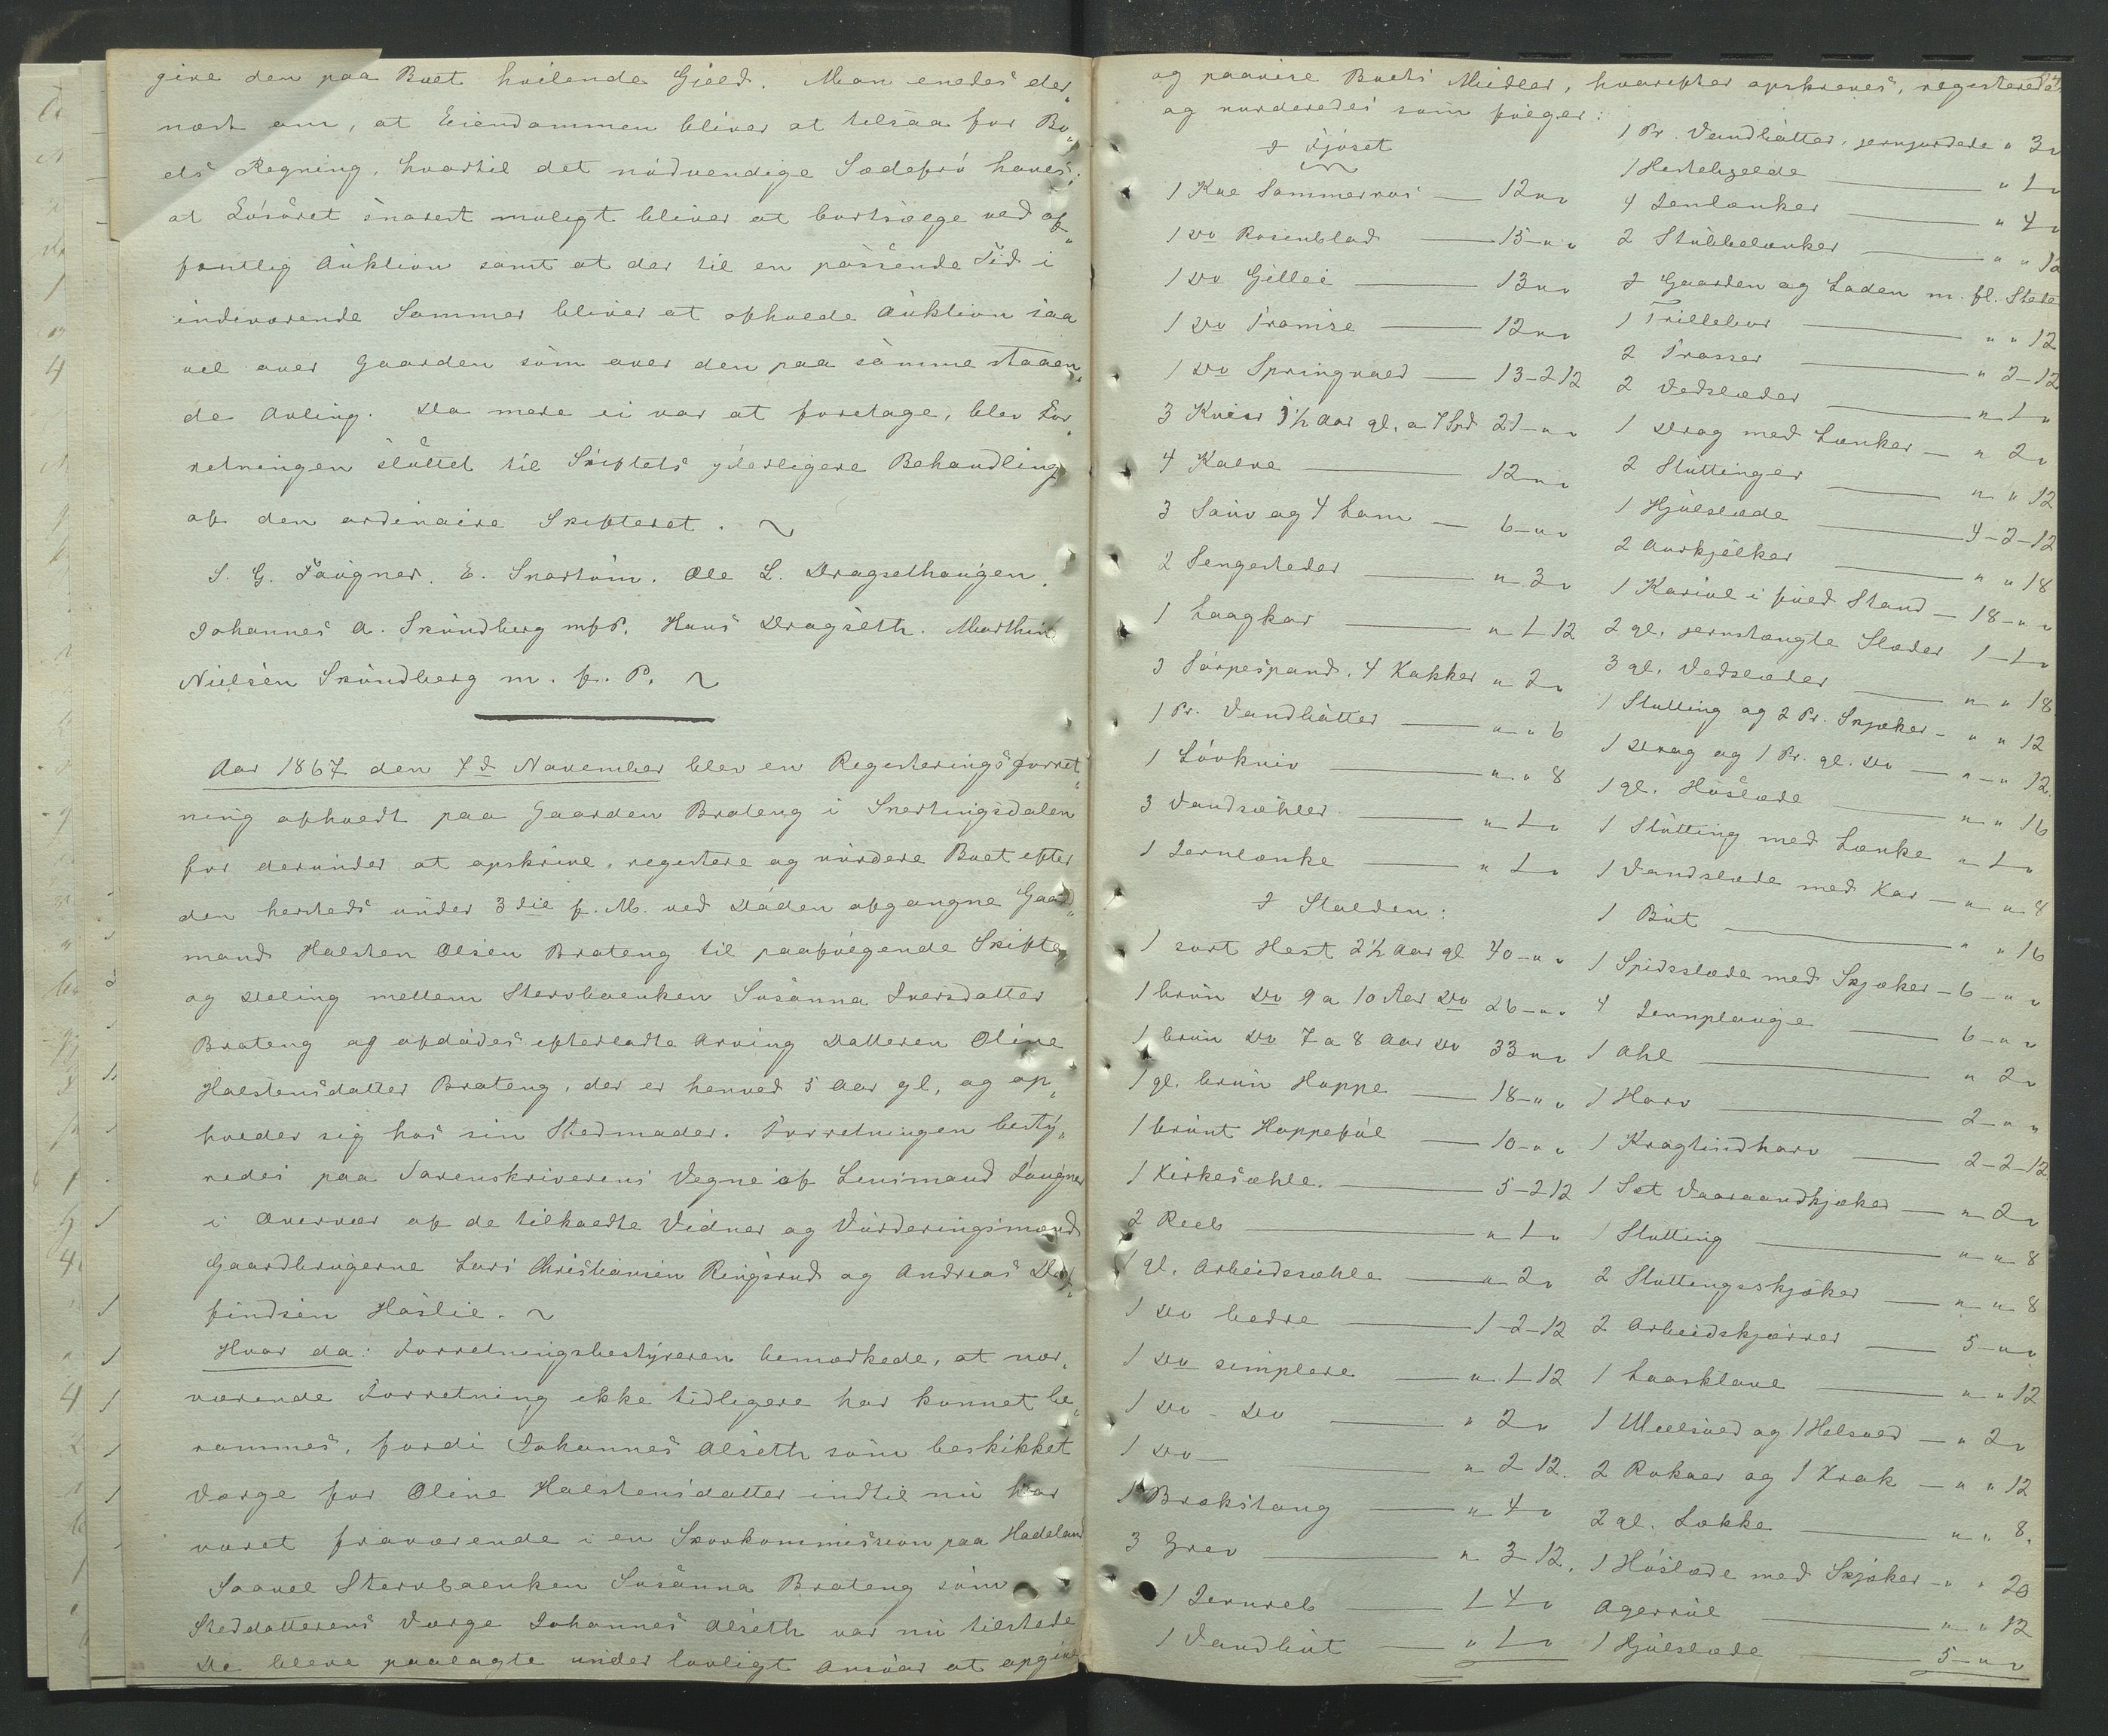 give den paa Boet hvilende Gjæld. Man enedes der„
næst om, at Eiendommen bliver at tilsaa for Bo„
ets Regning, hvortil det nødvendige Sædefrø haves;
at Løsøret snarest muligt bliver at bortsælge ved of„
fentlig Auktion samt at der til en passende Tid i
indeværende Sommer bliver at afholde Auktion saa
vel over Gaarden som over den paa samme staaen„
de Avling. Da mere ei var at foretage, blev For„
retningen sluttet til Skiftets yderligere Behandling
af den ordinaire Skifteret.
S. G. Faugner. E. Snartum. Ole L. Dragsethaugen.
Johannes A. Skundberg m f P. Hans Dragseth. Marthin
Nielsen Skundberg m. f. P.
Aar 1867 den 7d November blev en Registeringsforret„
ning afholdt paa Gaarden Brateng i Snertingsdalen
for derunder at opskrive, registere og vurdere Boet efter
den hersteds under 3die f. M. ved Døden afgangne Gaard„
mand Halsten Olsen Brateng til paafølgende Skifte
og Deling mellem Stervboenken Susanna Iversdatter
Brateng og afdødes efterladte Arving Datteren Oline
Halstensdatter Brateng, der er henved 5 Aar gl, og op„
holder sig hos sin Stedmoder. Forretningen besty„
redes paa Sorenskriverens Vegne af Lensmand Faugner
i Overvær af de tilkaldte Vidner og Vurderingsmænd
Gaardbrugerne Lars Christiansen Ringsrud og Andreas
findsen Haslie.
Hvor da: Forretningsbestyreren bemærkede, at nær„
værende Forretning ikke tidligere har kunnet be„
rammes, fordi Johannes Alseth som beskikket
Værge for Oline Halstensdatter indtil nu har
været fraværende i en Skovkommission paa Hadeland
Saavel Stervboenken Susanna Brateng som
Steddatterens Værge Johannes Alseth var nu tilstede
De bleve paalagte under lovligt Ansvar at opgive
og paavise Boets Midler, hvorefter opskreves, registeredes
og vurderedes som følger:
I Fjøset
1 Koe Sommerros — 12 " "
1 Do Rosenblad — 15 - " "
1 Do Gillei — 13 " "
1 Do Framise — 12 " "
1 Do Springvald — 13 - 2 12
3 Kvier 1½ Aar gl. a 7 Spd 21 - " "
4 Kalve — 12 - " "
3 Sauv og 4 Lam — 6 - " "
2 Sengesteder — " 3 "
1 Laagkar — " 1 12
3 Sørpespand. 4 Kakker " 2 "
1 Pr. Vandbøtter — " " 6
1 Løvkniv — " " 8
3 Vandsæhler — " 1 "
1 Jernlænke — " 1 "
I Stalden:
1 sort Hest 2½ Aar gl 40 - " "
1 brun Do 9 a 10 Aar Do 26 - " "
1 brun Do 7 a 8 Aar Do 33 " "
1 gl. brun Hoppe — 18 - " "
1 brunt Hoppeføl — 10 - " "
1 Kirkesæhle — 5 - 2 12
2 Reeb — " 1 "
1 gl. Arbeidssæhle — " 2 "
1 Do bedre — 1 - 2 - 12
1 Do simplere — " 1 12
1 Do - Do — " 2 "
1 Do — " 2 12.
1 Brækstang — " 4 "
3 Grev — " 3 12.
1 Jernreb — 1 4 "
1 Vandbut — " 1 "
1 Pr. Vandbøtter, jerngjordede " 3 "
1 Hestebjelde — " 1 "
4 Jernlænker — " 4 "
2 Stubbelænker — " " 12
I Gaarden og Laden m. fl. Steder
1 Trillebør — " " 12
2 Trosser — " 2 - 12
2 Vedslæder — " 1 "
1 Drag med Lænker — " 2 "
2 Stuttinger — " " 12
1 Hjulslæde — 4 - 2 - 12
2 Aurkjelker — " " 18
1 Kariol i fuld Stand — 18 - " "
2 gl. jernstængte Slæder 1 - 1 "
3 gl. Vedslæder — " " 18
1 Stutting og 2 Pr. Skjæker - " " 12
1 Drag og 1 Pr. gl. Do — " - " 12.
1 gl. Høslæde — " " 16
1 Stutting med Lænke " 1 "
1 Vandslæde med Kar — " " 8
1 But — " " 16
1 Spidsslæde med Skjæker — 6 - " "
4 Jernplouge — 6 - " "
1 Ahl — " 2 "
1 Harv — 2 - " "
1 Kragtindharv — 2 - 2 - 12
1 Set Vaaraandkjæker — " 2 "
1 Stutting — " " 8
2 Stuttingsskjæker — " " 8
2 Arbeidskjærrer — 5 - " "
1 Laasklave — " " 12
1 Meelsold og 1 Helsold — " 2 "
2 Rokaer og 1 Krak — " " 12
2 gl. Løkke — " " 8.
1 Høslæde med Skjæker — " " 20
Agerrul — " " 12
1 Hjulslæde — 5 - " "